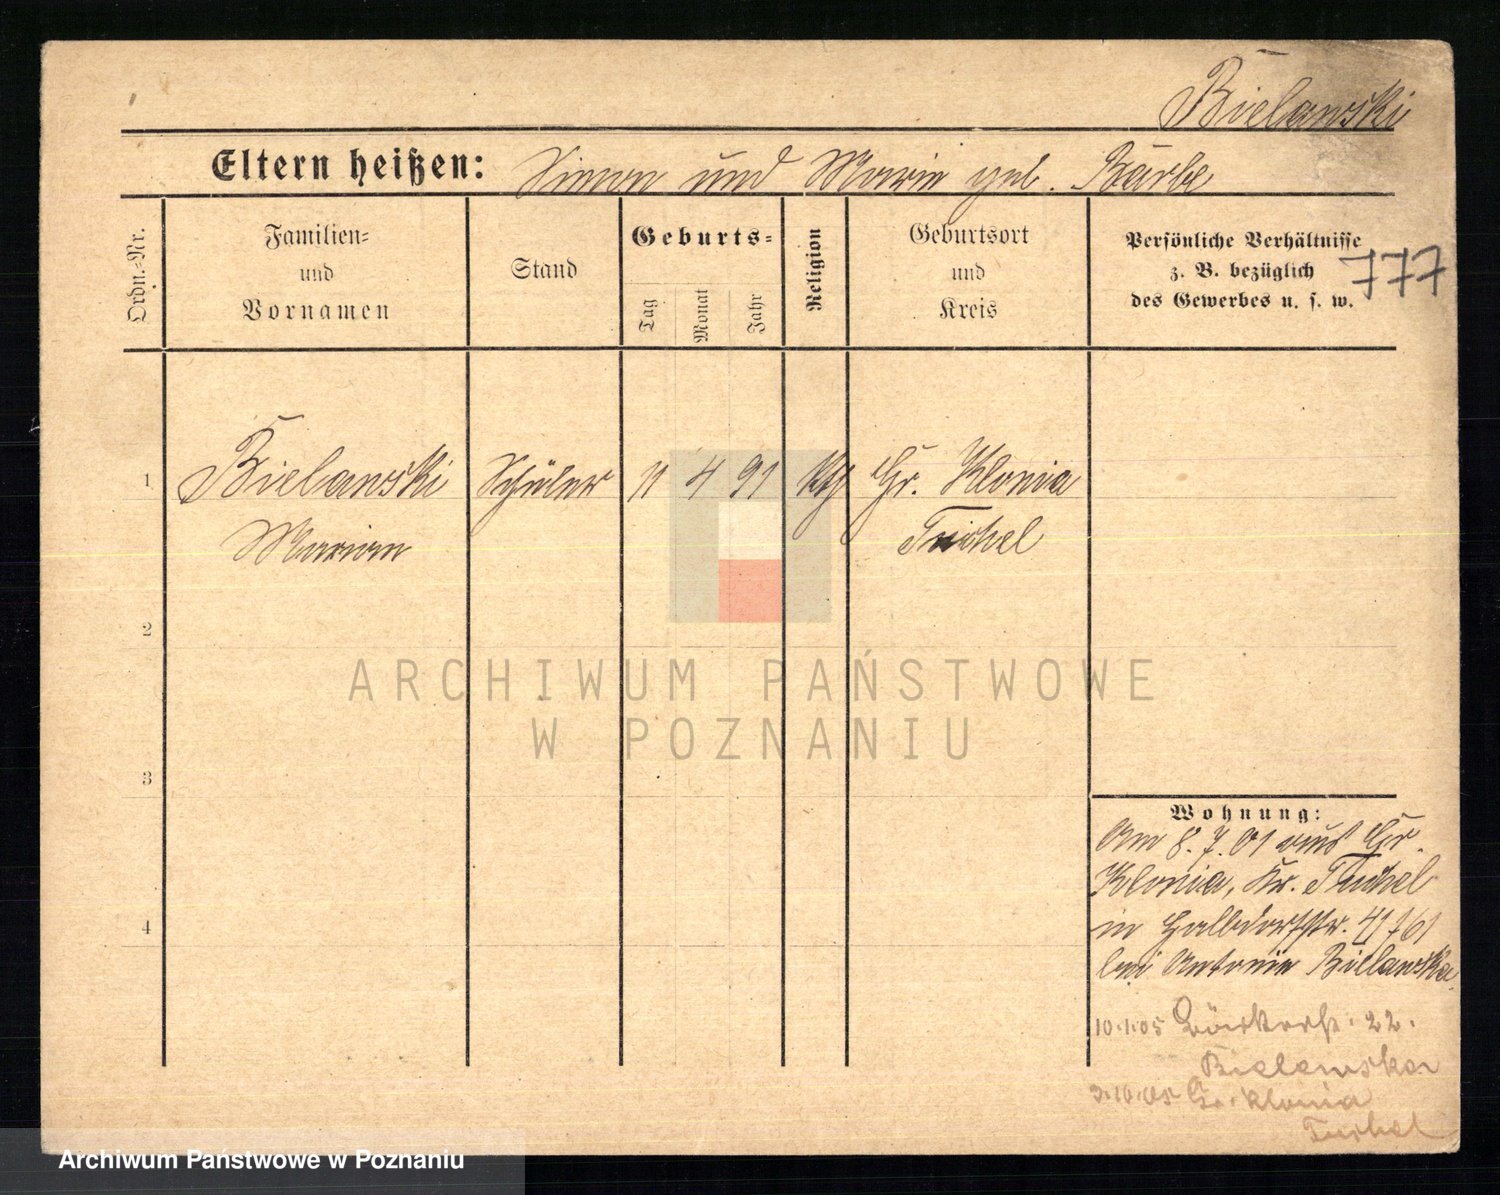 Bielawski
Eltern heißen: Simon und Marie geb. Bärbe
Ordn.-Nr.
Familien-
und
Vornamen
Stand
Geburts-
Tag
Monat
Jahr
Religion
Geburtsort
und
Kreis
Persönliche Verhältnisse
z. B. bezüglich
des Gewerbes u. s. w.
777
1 Bielawski Schüler 11 4 91 Kth Gr. Klonia
Marian Tuchel
2
3
4
Wohnung:
Am 8.7.01 aus Gr.
Klonia, Kr. Tuchel
in Halbdorfstr.
bei Antonie Bielawska
10.1.05 22.
Bielawska
3.10.05 Gr. Klonia
Tuchel
ARCHIWUM PAŃSTWOWE
W POZNANIU
Archiwum Państwowe w Poznaniu